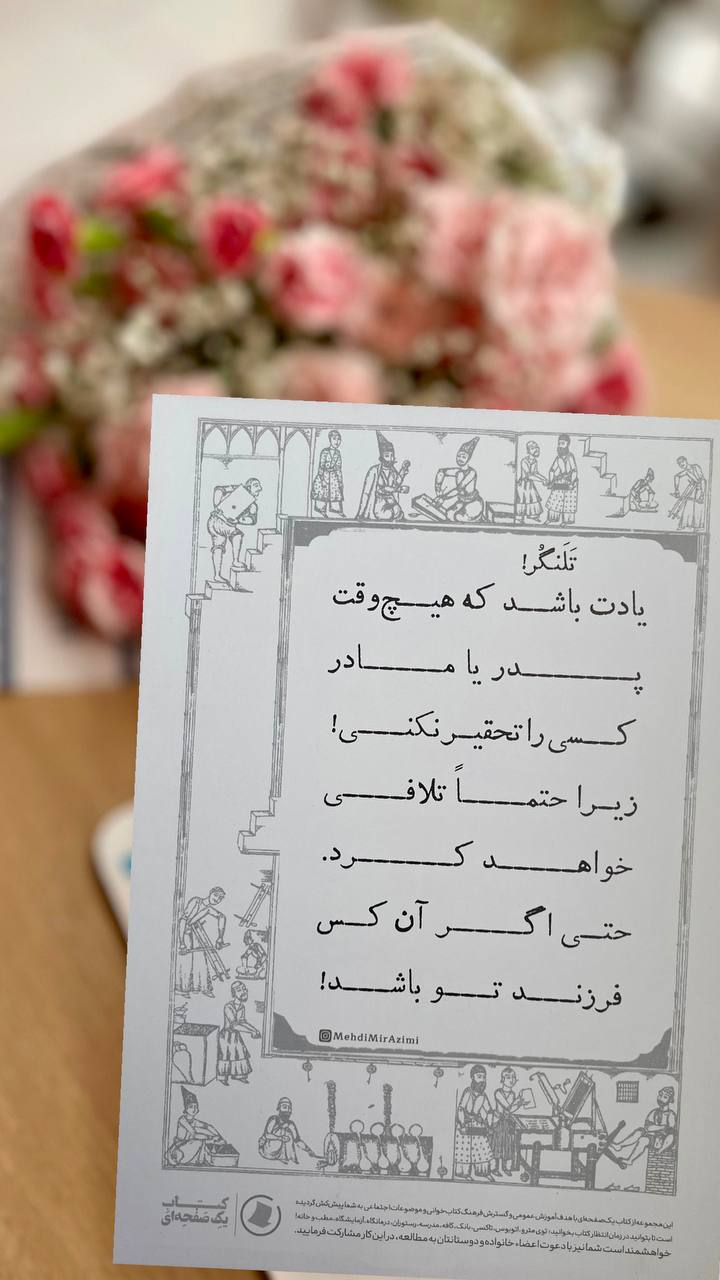 تَلَنگُر!
یادت باشد که هیچ‌وقت
پدر یا مادر
کسی را تحقیر نکنی!
زیرا حتماً تلافی
خواهد کرد.
حتی اگر آن کس
فرزند تو باشد!
MehdiMirAzimi
کتاب
یک‌صفحه‌ای
این مجموعه از کتاب یک‌صفحه‌ای با هدف آموزش عمومی و گسترش فرهنگ کتاب‌خوانی و موضوعات اجتماعی به شما پیش‌کش گردیده
است تا بتوانید در زمان انتظار کتاب بخوانید، توی مترو، اتوبوس، تاکسی، بانک، کافه، مدرسه، رستوران، درمانگاه، آزمایشگاه، مطب و خانه!
خواهشمند است شما نیز با دعوت اعضاء خانواده و دوستانتان به مطالعه، در این کار مشارکت فرمایید.